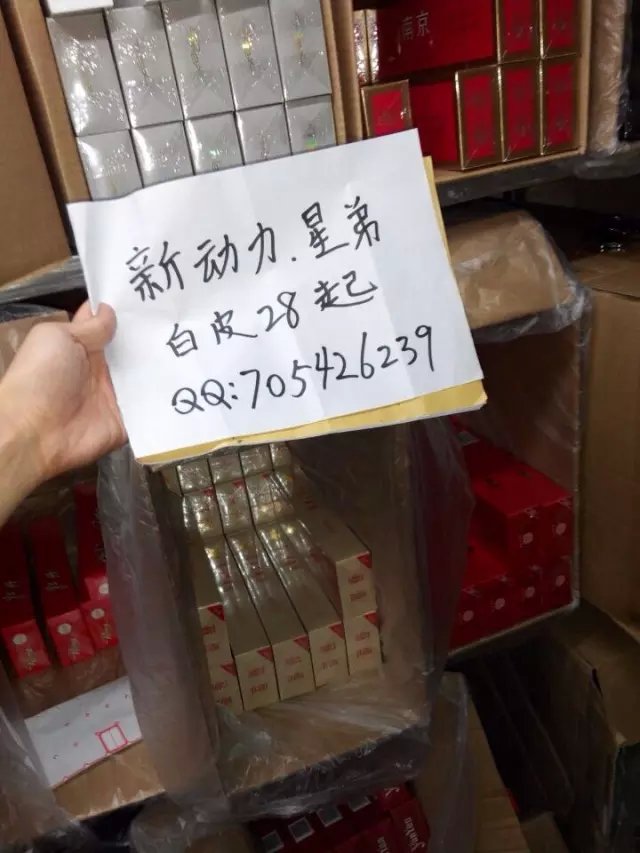 南京
新动力.星弟
白皮28起
QQ:705426239